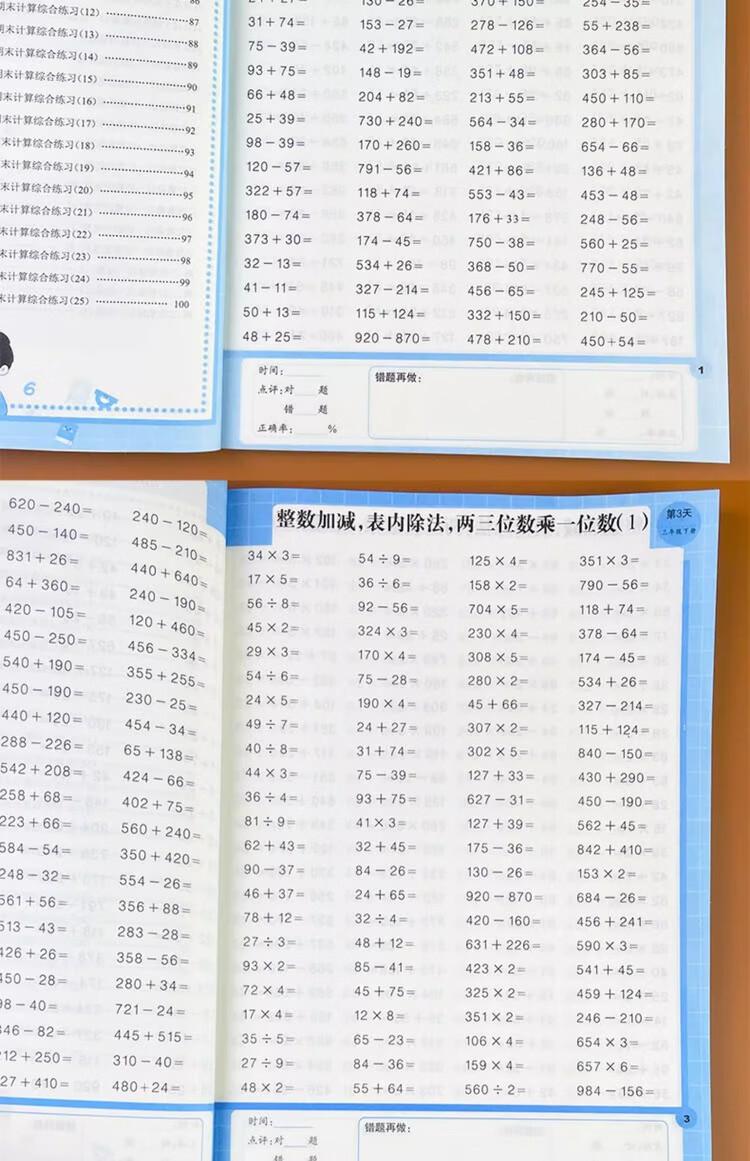 期末计算综合练习(12) 87
期末计算综合练习(13) 88
末计算综合练习(14) 89
末计算综合练习(15) 90
末计算综合练习(16) 91
末计算综合练习(17) 92
末计算综合练习(18) 93
末计算综合练习(19) 94
末计算综合练习(20) 95
末计算综合练习(21) 96
末计算综合练习(22) 97
末计算综合练习(23) 98
末计算综合练习(24) 99
末计算综合练习(25) 100
6
31+74= 153-27= 278-126= 55+238=
75-39= 42+192= 472+108= 364-56=
93+75= 148-19= 351+48= 303+85=
66+48= 204+82= 213+55= 450+110=
25+39= 730+240= 564-34= 280+170=
98-39= 170+260= 158-36= 654-66=
120-57= 791-56= 421+86= 136+48=
322+57= 118+74= 553-43= 453-48=
180-74= 378-64= 176+33= 248-56=
373+30= 174-45= 750-38= 560+25=
32-13= 534+26= 368-50= 770-55=
41-11= 327-214= 456-65= 245+125=
50+13= 115+124= 332+150= 210-50=
48+25= 920-870= 478+210= 450+54=
时间:
点评:对 题
错 题
正确率: %
错题再做:
1
620-240= 240-120=
450-140= 485-210=
831+26= 440+640=
64+360= 240-190=
420-105= 120+460=
450-250= 456-334=
540+190= 355+255=
450-190= 230-25=
440+120= 454-34=
288-226= 65+138=
542+208= 424-66=
258+68= 402+75=
223+66= 560+240=
584-54= 350+420=
248-32= 554-26=
561+56= 356+88=
513-43= 283-28=
426+26= 358-56=
450-28= 280+34=
98-40= 721-24=
346-82= 445+515=
212+250= 310-40=
27+410= 480+24=
整数加减,表内除法,两三位数乘一位数(1)
第3天
三年级下册
34×3= 54÷9= 125×4= 351×3=
17×5= 36÷6= 158×2= 790-56=
56÷8= 92-56= 704×5= 118+74=
45×2= 324×3= 230×4= 378-64=
29×3= 170×4= 308×5= 174-45=
54÷6= 75-28= 280×2= 534+26=
24×5= 190×4= 45+66= 327-214=
49÷7= 24+27= 307×2= 115+124=
40÷8= 31+74= 302×5= 840-150=
44×3= 75-39= 127+33= 430+290=
36÷4= 93+75= 627-31= 450-190=
81÷9= 41×3= 127+39= 562+45=
62+43= 32+45= 175-36= 842+410=
90-37= 84-26= 130-26= 153×2=
46+37= 24+65= 920-870= 684-26=
78+12= 32÷4= 420-160= 456+241=
27÷3= 48+12= 631+226= 590×3=
93×2= 85-41= 423×2= 541+45=
72×4= 45+75= 325×2= 459+124=
17×4= 12×8= 351×2= 246-210=
35÷5= 65-23= 106×4= 654×3=
27÷9= 84-36= 159×4= 657×6=
48×2= 55+64= 560÷2= 984-156=
3
时间:
点评:对 题
错题再做: